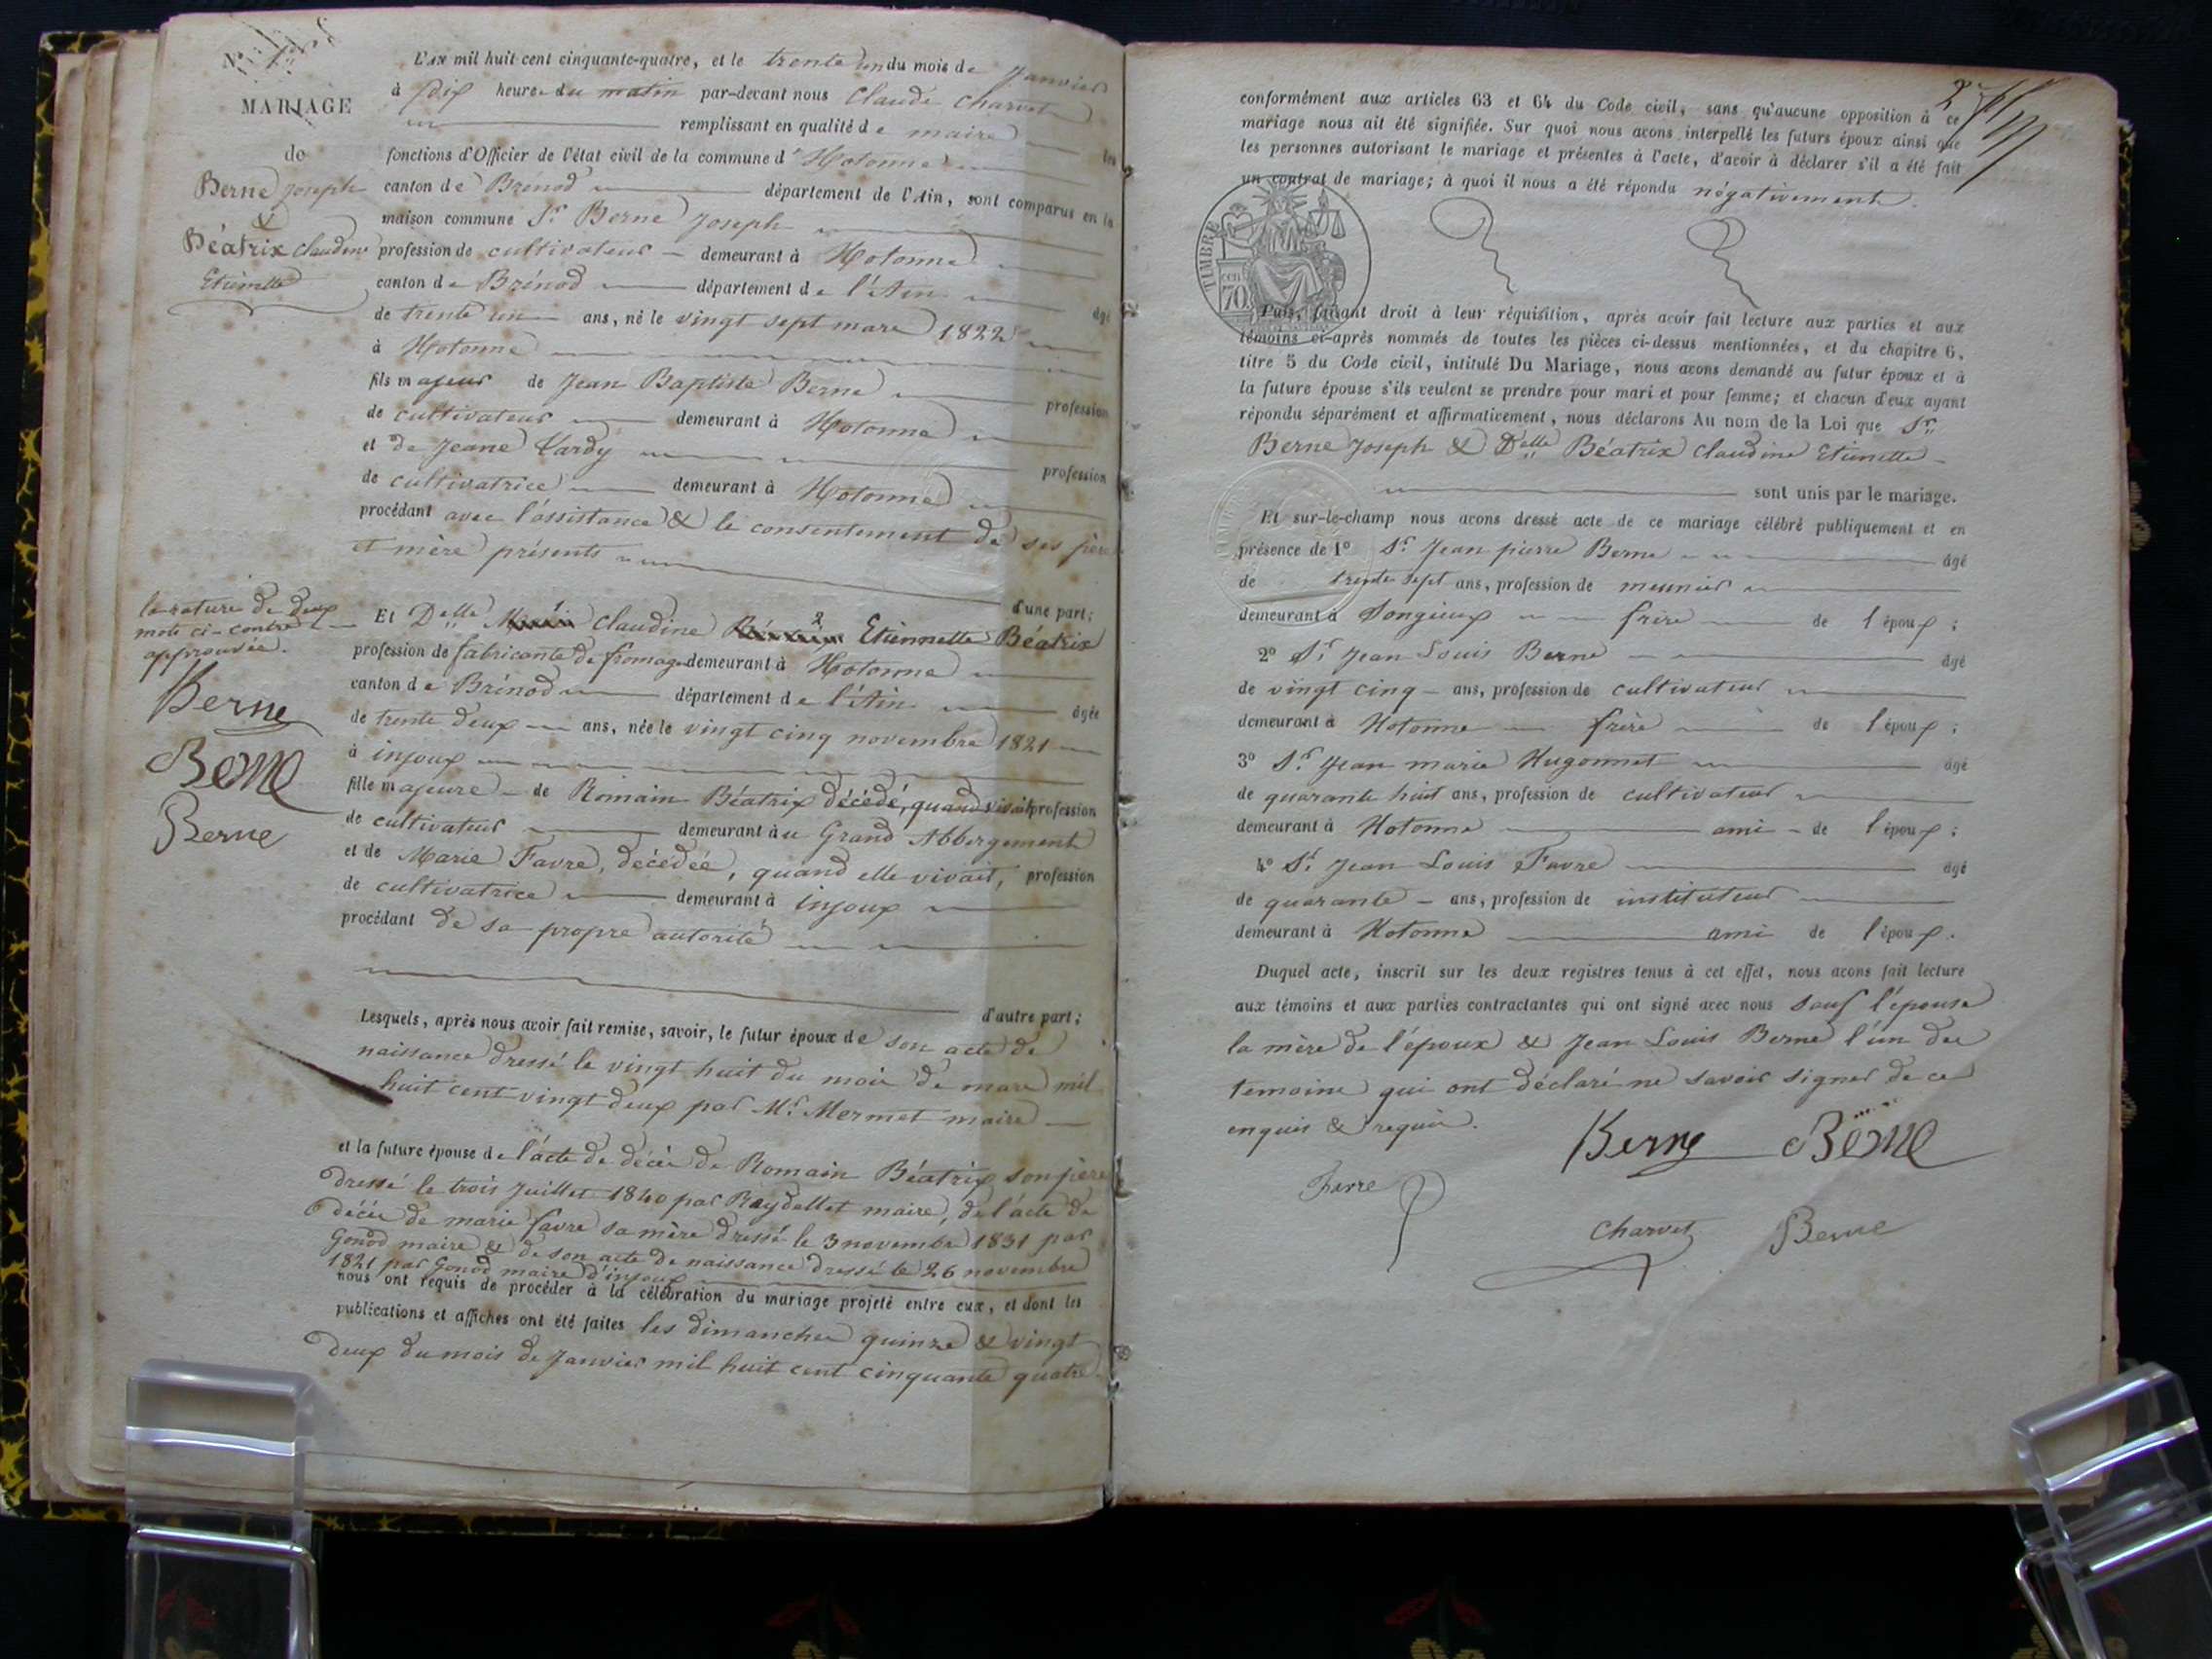 N° 1er
MARIAGE
de
Berne Joseph
&
Béatrix Claudine
Etiennette
L'an mil huit cent cinquante-quatre, et le trente un du mois de Janvier
à dix heures du matin par-devant nous Claude Charvet
remplissant en qualité de maire les
fonctions d'Officier de l'état civil de la commune d'Hotonne
canton de Brénod département de l'Ain, sont comparus en la
maison commune Sr Berne Joseph
profession de cultivateur demeurant à Hotonne
canton de Brénod département de l'Ain âgé
de trente un ans, né le vingt sept mars 1822
à Hotonne
fils majeur de Jean Baptiste Berne profession
de cultivateur demeurant à Hotonne
et de Jeane Tardy profession
de cultivatrice demeurant à Hotonne
procédant avec l'assistance & le consentement de ses père
et mère présents
d'une part;
la rature de deux
mots ci-contre
approuvée.
Berne
Berne
Berne
Et Delle Claudine Etiennette Béatrix
profession de fabricante de fromage demeurant à Hotonne
canton de Brénod département de l'Ain âgée
de trente deux ans, née le vingt cinq novembre 1821
à injoux
fille majeure de Romain Béatrix décédé, quand vivait profession
de cultivateur demeurant au Grand Abbergement
et de Marie Favre, décédée, quand elle vivait, profession
de cultivatrice demeurant à injoux
procédant de sa propre autorité
d'autre part;
Lesquels, après nous avoir fait remise, savoir, le futur époux de son acte de
naissance dressé le vingt huit du mois de mars mil
huit cent vingt deux par Mr Mermet maire
et la future épouse de l'acte de décès de Romain Béatrix son père
dressé le trois Juillet 1840 par Raydellet maire, de l'acte de
décès de marie favre sa mère dressé le 3 novembre 1831 par
Gonod maire & de son acte de naissance dressé le 26 novembre
1821 par Gonod maire d'injoux
nous ont requis de procéder à la célébration du mariage projeté entre eux, et dont les
publications et affiches ont été faites les dimanches quinze & vingt
deux du mois de Janvier mil huit cent cinquante quatre
2
conformément aux articles 63 et 64 du Code civil, sans qu'aucune opposition à ce
mariage nous ait été signifiée. Sur quoi nous avons interpellé les futurs époux ainsi que
les personnes autorisant le mariage et présentes à l'acte, d'avoir à déclarer s'il a été fait
un contrat de mariage; à quoi il nous a été répondu négativement.
TIMBRE
70 cent
Puis, faisant droit à leur réquisition, après avoir fait lecture aux parties et aux
témoins ci-après nommés de toutes les pièces ci-dessus mentionnées, et du chapitre 6,
titre 5 du Code civil, intitulé Du Mariage, nous avons demandé au futur époux et à
la future épouse s'ils veulent se prendre pour mari et pour femme; et chacun d'eux ayant
répondu séparément et affirmativement, nous déclarons Au nom de la Loi que Sr
Berne Joseph & Delle Béatrix Claudine Etiennette
sont unis par le mariage.
Et sur-le-champ nous avons dressé acte de ce mariage célébré publiquement et en
présence de 1° Sr Jean pierre Berne âgé
de trente sept ans, profession de meunier
demeurant à Songieux frère de l'époux;
2° Sr Jean Louis Berne âgé
de vingt cinq ans, profession de cultivateur
demeurant à Hotonne frère de l'époux;
3° Sr Jean marie Hugonnet âgé
de quarante huit ans, profession de cultivateur
demeurant à Hotonne ami de l'époux;
4° Sr Jean Louis Favre âgé
de quarante ans, profession de instituteur
demeurant à Hotonne ami de l'époux.
Duquel acte, inscrit sur les deux registres tenus à cet effet, nous avons fait lecture
aux témoins et aux parties contractantes qui ont signé avec nous sauf l'épouse
la mère de l'époux & Jean Louis Berne l'un des
temoins qui ont déclaré ne savoir signer de ce
enquis & requis.
Berne Berne
Favre
Charvet Berne